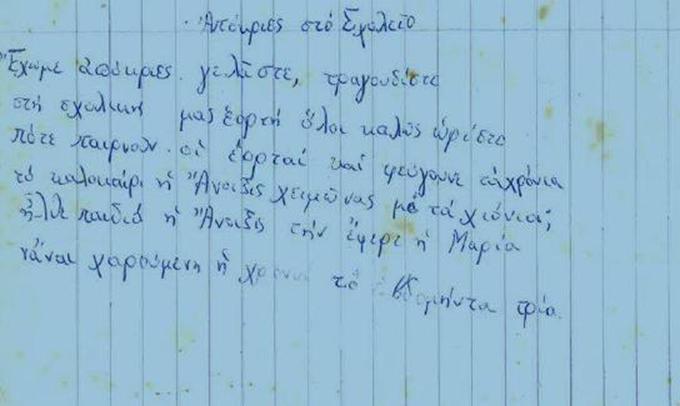 Ἀπόκριες στό Σχολεῖο
Ἔχωμε ἀπόκριες. γελᾶστε, τραγουδᾶστε
στή σχολική μας ἑορτή ὅλοι καλῶς ὡρίστε
πότε παιρνουν οἱ ἑορταί καί φεύγουνε τά χρόνια
τό καλοκαίρι ἡ Ἄνοιξις χειμῶνας μέ τά χιόνια;
ἦλθε παιδιά ἡ Ἄνοιξις τήν ἔφερε ἡ Μαρία
νἆναι χαρούμενη ἡ χρονιά τό ἑβδομήντα τρία.